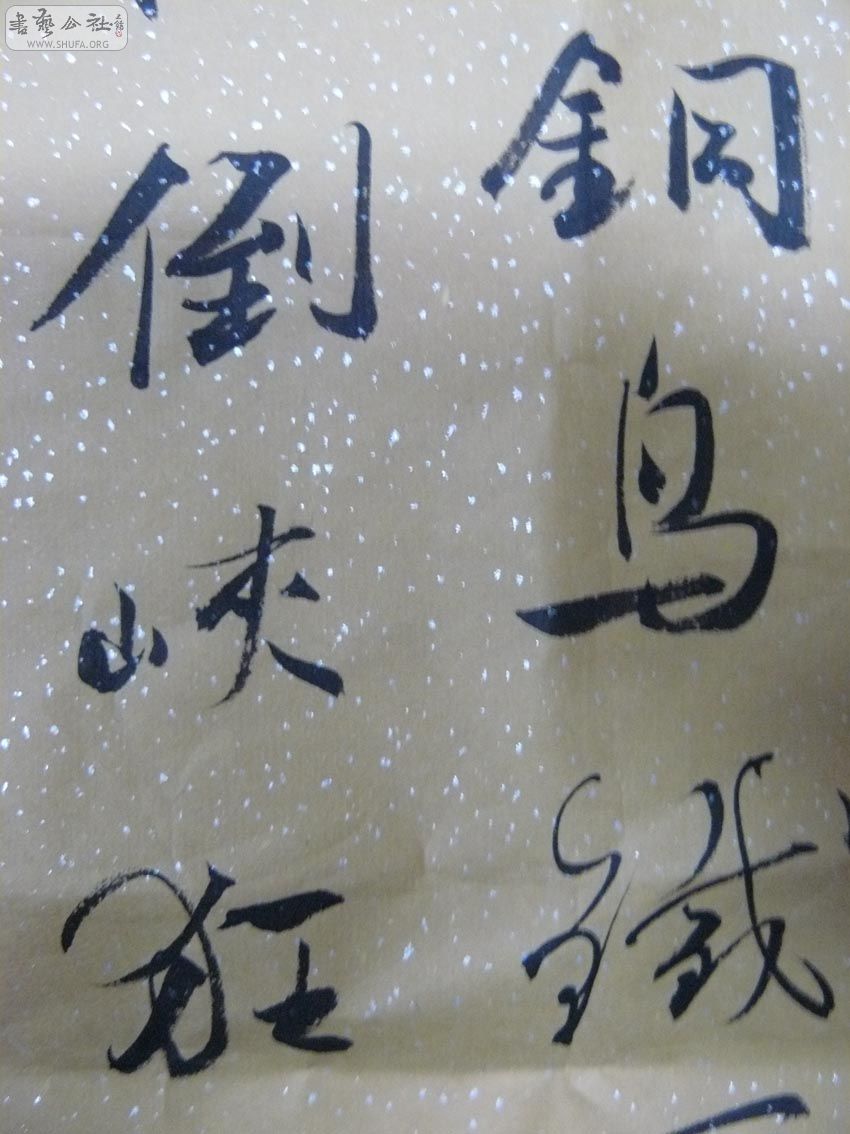 書藝公社
WWW.SHUFA.ORG
銅鳥鐵
倒峽狂